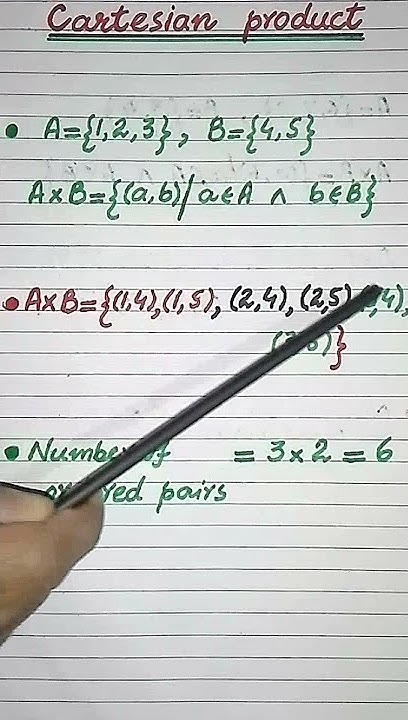 Cartesian product
• A={1,2,3}, B={4,5}
A×B={(a,b)/a∈A ∧ b∈B}
• A×B={(1,4),(1,5), (2,4), (2,5)
}
• Number of = 3×2 = 6
pairs